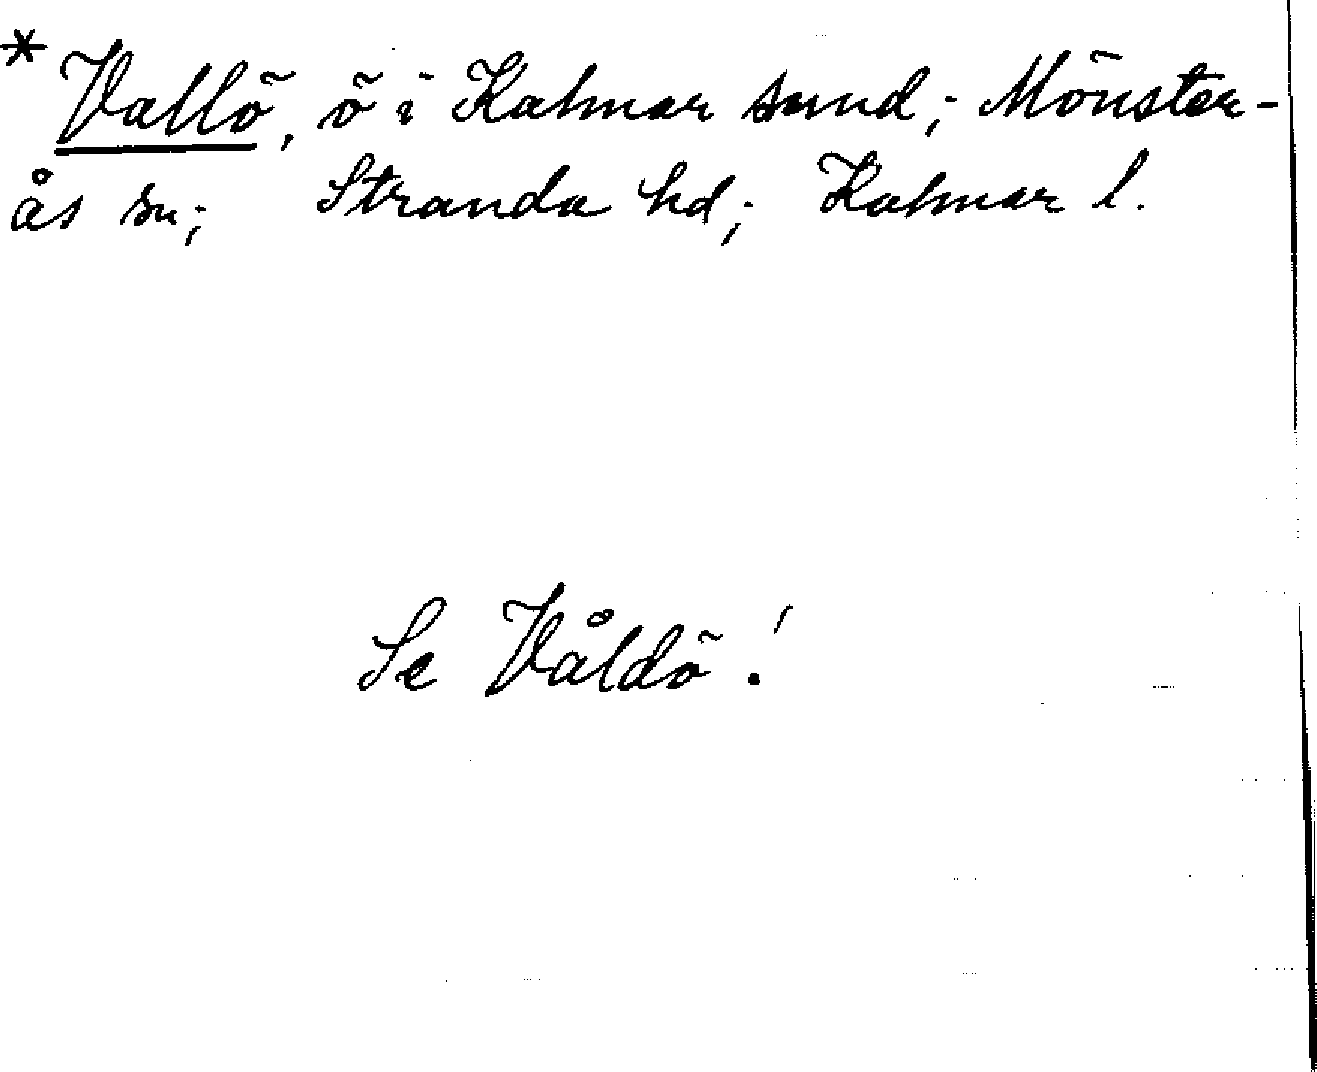 * Vallö, ö i Kalmar sund; Mönster-
ås sn; Stranda hd; Kalmar l.
Se Våldö!